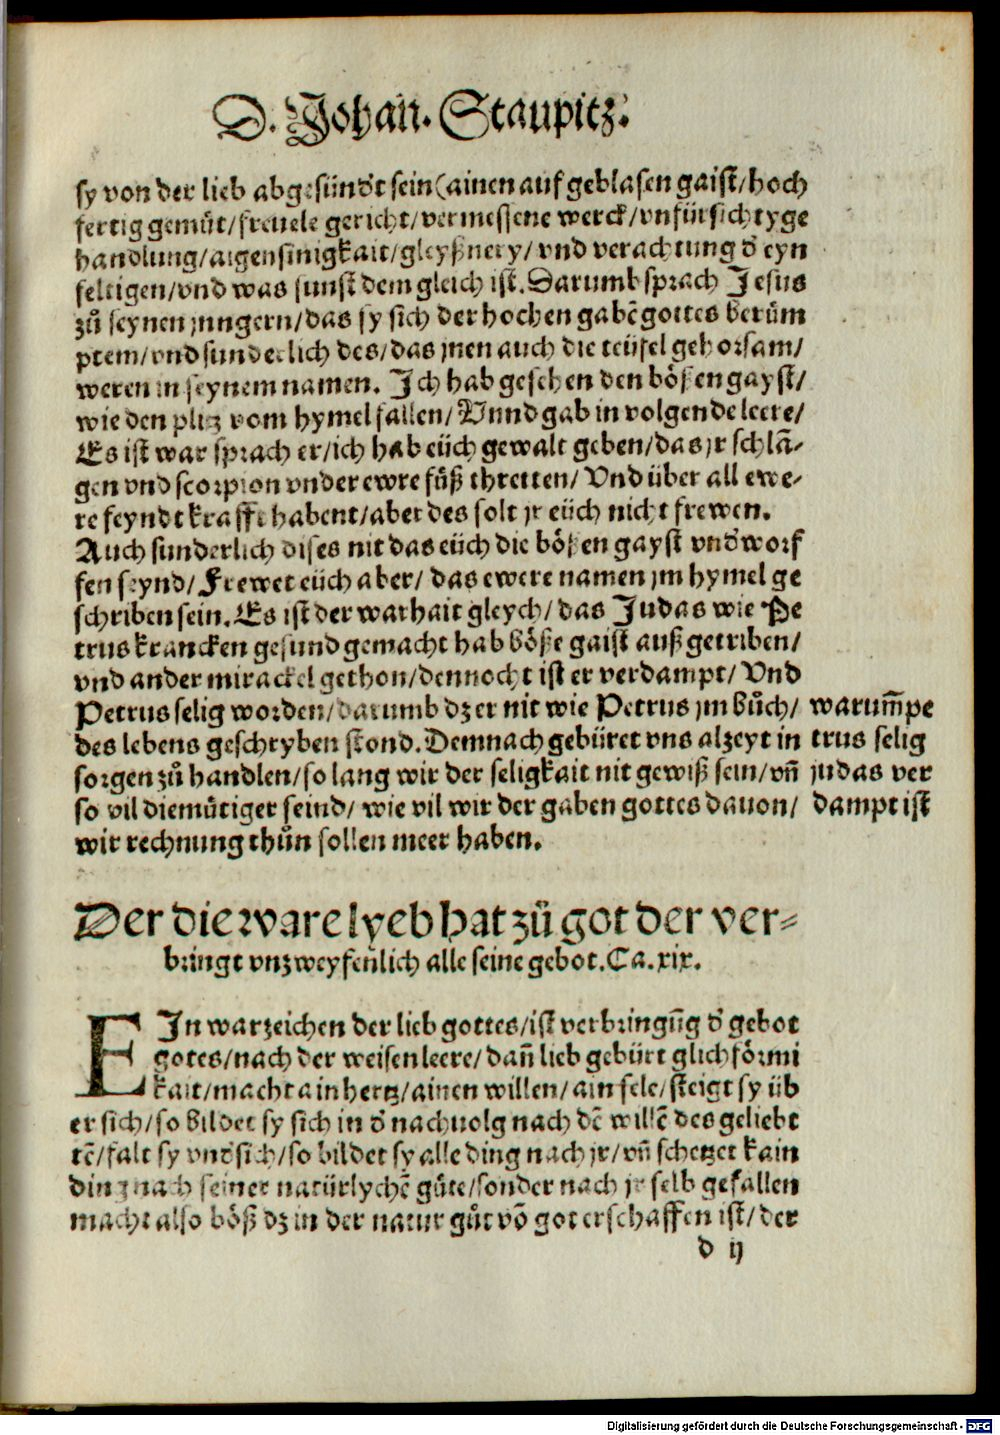 D. Johan. Staupitz.
sy von der lieb abgesünd't sein (ainen auf geblasen gaist/hoch
fertig gemüt/freuele gericht/vermessene werck/vnfürsichtyge
handlung/aigensinigkait/gleyßnery/vnd verachtung d' eyn
feltigen/vnd was sunst dem gleich ist. Darumb sprach Jesus
zů seynen jungern/das sy sich der hochen gabē gottes berüm
ptem/vnd sunderlich des/das jnen auch die teüfel gehorsam/
weren in seynem namen. Ich hab gesehen den bößen gayst/
wie den plitz vom hymel fallen/Vnnd gab in volgende leere/
Es ist war sprach er/ich hab eüch gewalt geben/das jr schlā-
gen vnd scorpion vnder ewre füß thretten/Vnd über all ewe-
re feyndt kraffte habent/aber des solt jr eüch nicht frewen.
Auch sunderlich dises nit das eüch die bößen gayst vnd'worf
fen seynd/Frewet eüch aber/das ewere namen jm hymel ge
schriben sein. Es ist der warhait gleych/das Judas wie Pe
trus krancken gesund gemacht hab böße gaist auß getriben/
vnd ander mirackel gethon/dennocht ist er verdampt/Vnd
Petrus selig worden/darumb dz er nit wie Petrus jm bůch/
des lebens geschryben stond. Demnach gebüret vns alzeyt in
sorgen zů handlen/so lang wir der seligkait nit gewiß sein/vñ
so vil diemütiger seind/wie vil wir der gaben gottes dauon/
wir rechnung thůn sollen meer haben.
warum̄ pe
trus selig
judas ver
dampt ist
Der die ware lyeb hat zů got der ver-
bringt vnzweyfenlich alle seine gebot. Ca. xix.
EIn warzeichen der lieb gottes/ist verbringūg d' gebot
gotes/nach der weisen leere/dañ lieb gebürt glich förmi
kait/macht ain hertz/ainen willen/ain sele/steigt sy üb
er sich/so bildet sy sich in d' nachuolg nach dē willē des geliebt
tē/falt sy vnd'sich/so bildet sy alle ding nach jr/vñ schetzet kain
ding nach seiner natürlychē güte/sonder nach jr selb gefallen
macht also böß dz in der natur gůt vō got erschaffen ist/der
d ij
Digitalisierung gefördert durch die Deutsche Forschungsgemeinschaft - DFG